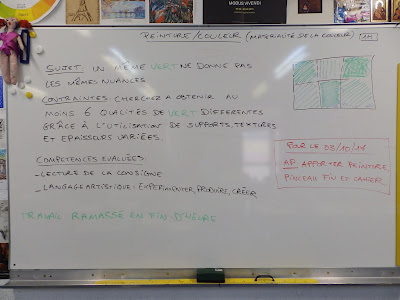 MODUS VIVENDI
PEINTURE/COULEUR (MATERIALITE DE LA COULEUR) 1H
SUJET: UN MÊME VERT NE DONNE PAS
LES MÊMES NUANCES
CONTRAINTES: CHERCHEZ A OBTENIR AU
MOINS 6 QUALITÉS DE VERT DIFFERENTES
GRÂCE À L'UTILISATION DE SUPPORTS, TEXTURES
ET EPAISSEURS VARIÉES.
COMPETENCES EVALUÉES
- LECTURE DE LA CONSIGNE
- LANGAGE ARTISTIQUE: EXPERIMENTER, PRODUIRE, CRÉER
TRAVAIL RAMASSÉ EN FIN D'HEURE
POUR LE 03/10/17
AP APPORTER PEINTURE,
PINCEAU FIN ET CAHIER